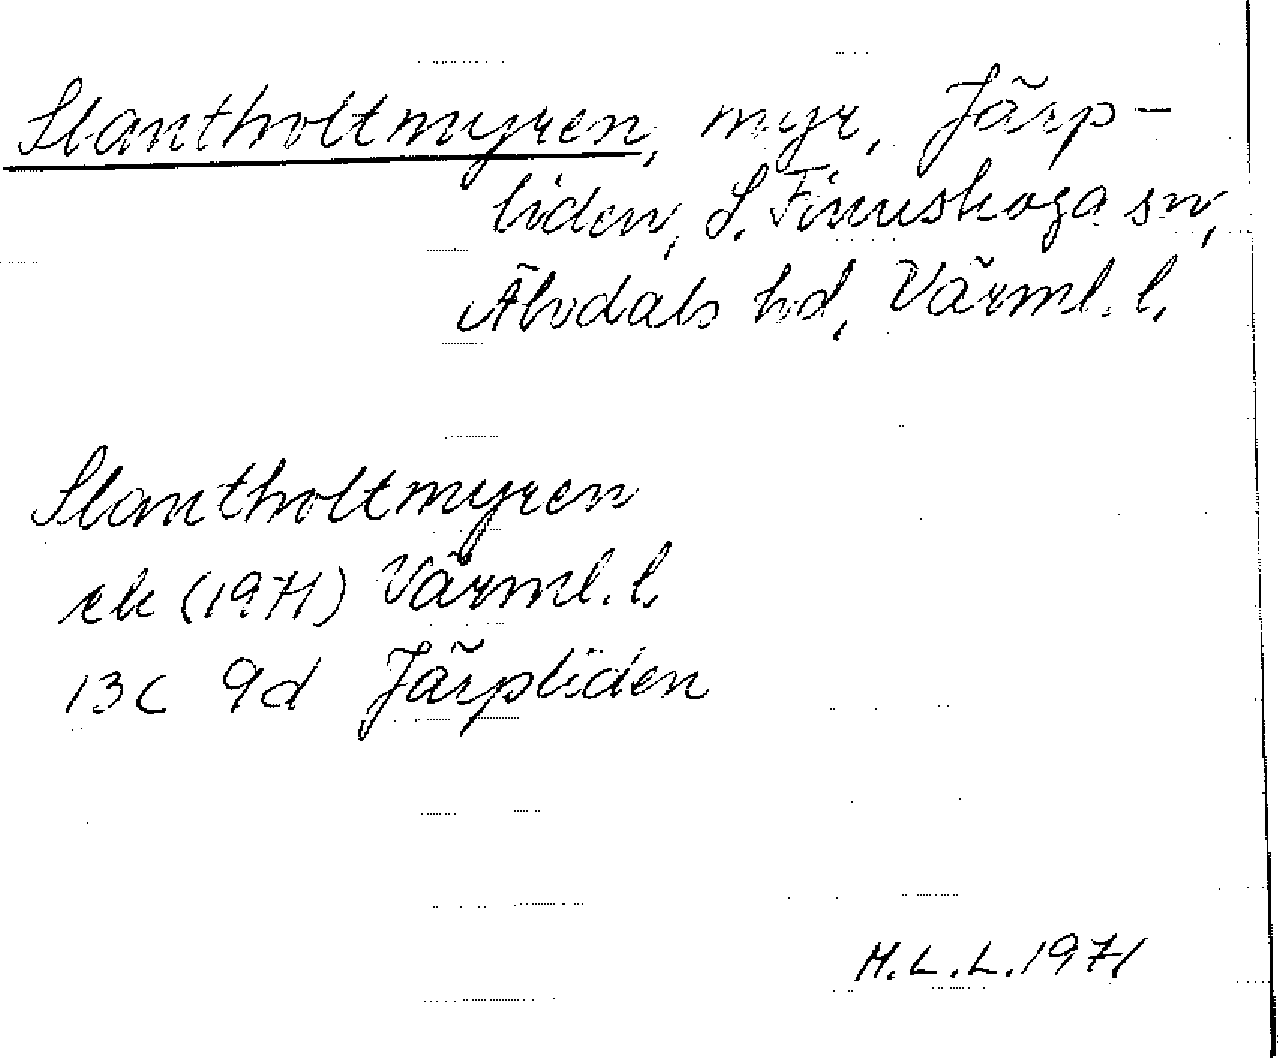 Slantholtmyren, myr, Järp-
liden, S. Finnskoga sn,
Älvdals hd, Värml. l.
Slantholtmyren
ek (1971) Värml. l.
13C 9d Järpliden
M.L.L. 1971